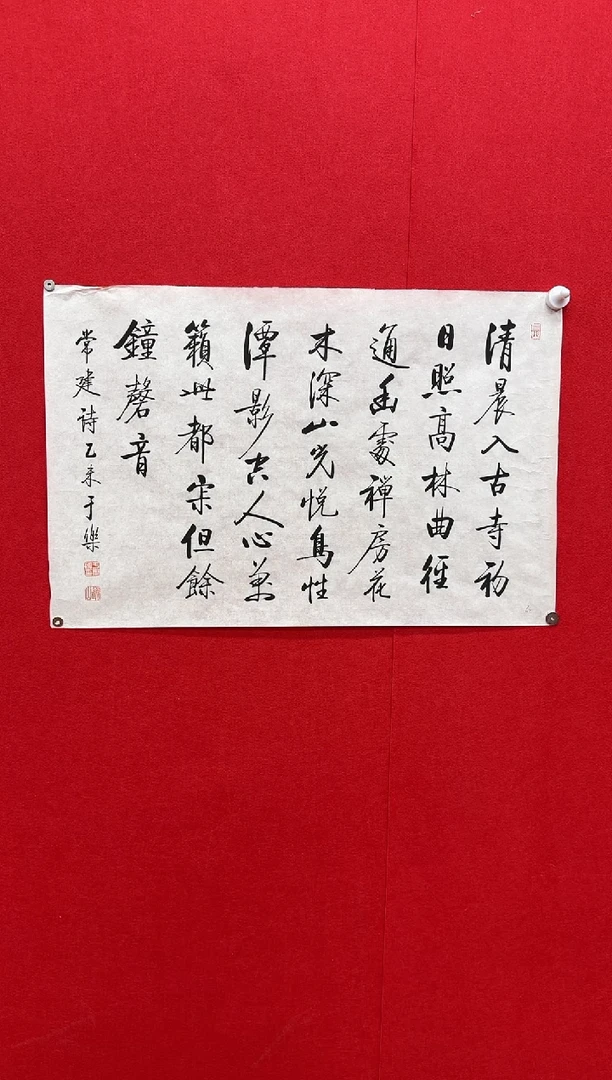 清晨入古寺初
日照高林曲徑
通幽處禪房花
木深山光悅鳥性
潭影空人心萬
籟此都寂但餘
鐘磬音
常建詩乙未于樂